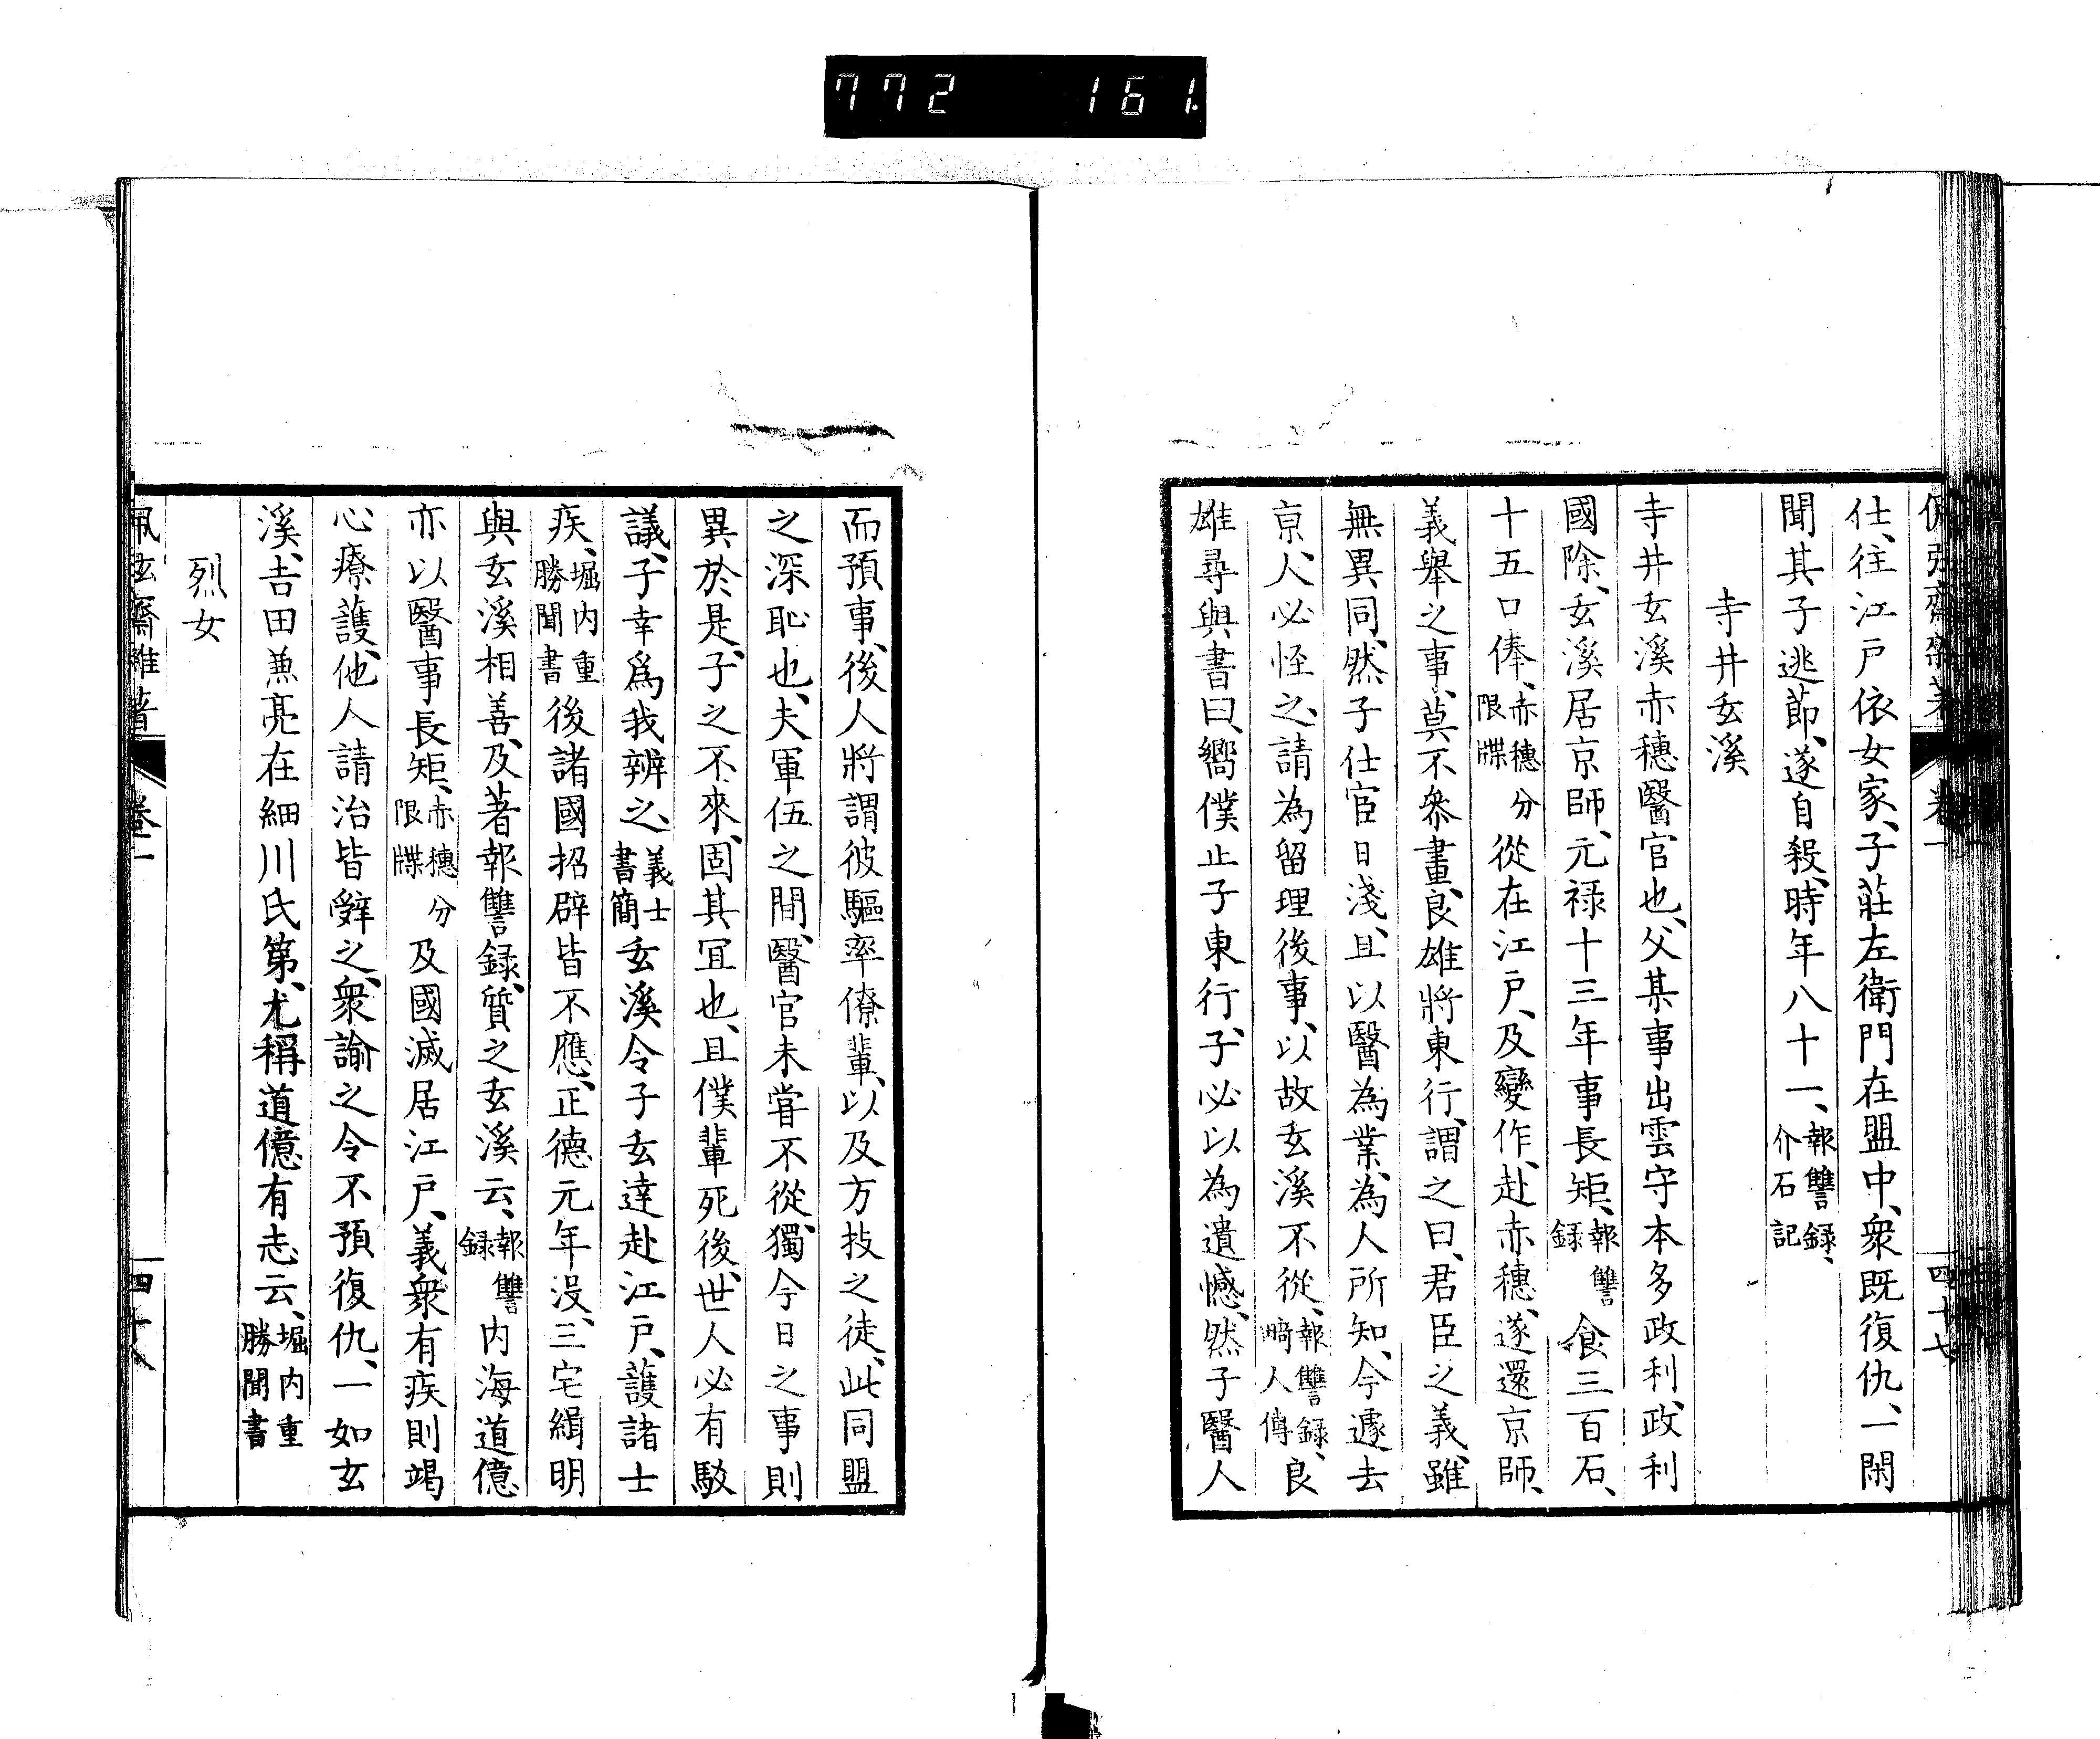 772 161
仕、往江戸依女家、子莊左衛門在盟中、衆既復仇、一閑
聞其子逃節、遂自殺、時年八十一、報讐録、介石記
寺井玄溪
寺井玄溪赤穗醫官也、父某事出雲守本多政利、政利
國除、玄溪居京師、元禄十三年事長矩、報讐録食三百石、
十五口俸、赤穗分限牒從在江戸、及變作、赴赤穗、遂還京師、
義舉之事、莫不叅畫、良雄將東行、謂之曰、君臣之義、雖
無異同、然子仕宦日淺、且以醫為業、為人所知、今遽去
京、人必怪之、請為留理後事、以故玄溪不從、報讐録、畸人傳良
雄尋與書曰、嚮僕止子東行、子必以為遺憾、然子醫人
而預事、後人將謂彼驅率僚輩、以及方技之徒、此同盟
之深恥也、夫軍伍之間、醫官未甞不從、獨今日之事則
異於是、子之不來、固其冝也、且僕輩死後、世人必有駁
議、子幸爲我辨之、義士書簡玄溪令子玄達赴江戸、護諸士
疾、堀内重勝聞書後諸國招辟皆不應、正德元年沒、三宅緝明
與玄溪相善、及著報讐録、質之玄溪云、報讐録内海道億
亦以醫事長矩、赤穗分限牒及國滅居江戸、義衆有疾則竭
心療護、他人請治皆辭之、衆諭之令不預復仇、一如玄
溪、吉田兼亮在細川氏第、尤稱道億有志云、堀内重勝聞書
烈女
佩弦齋雜著 卷一 四十八